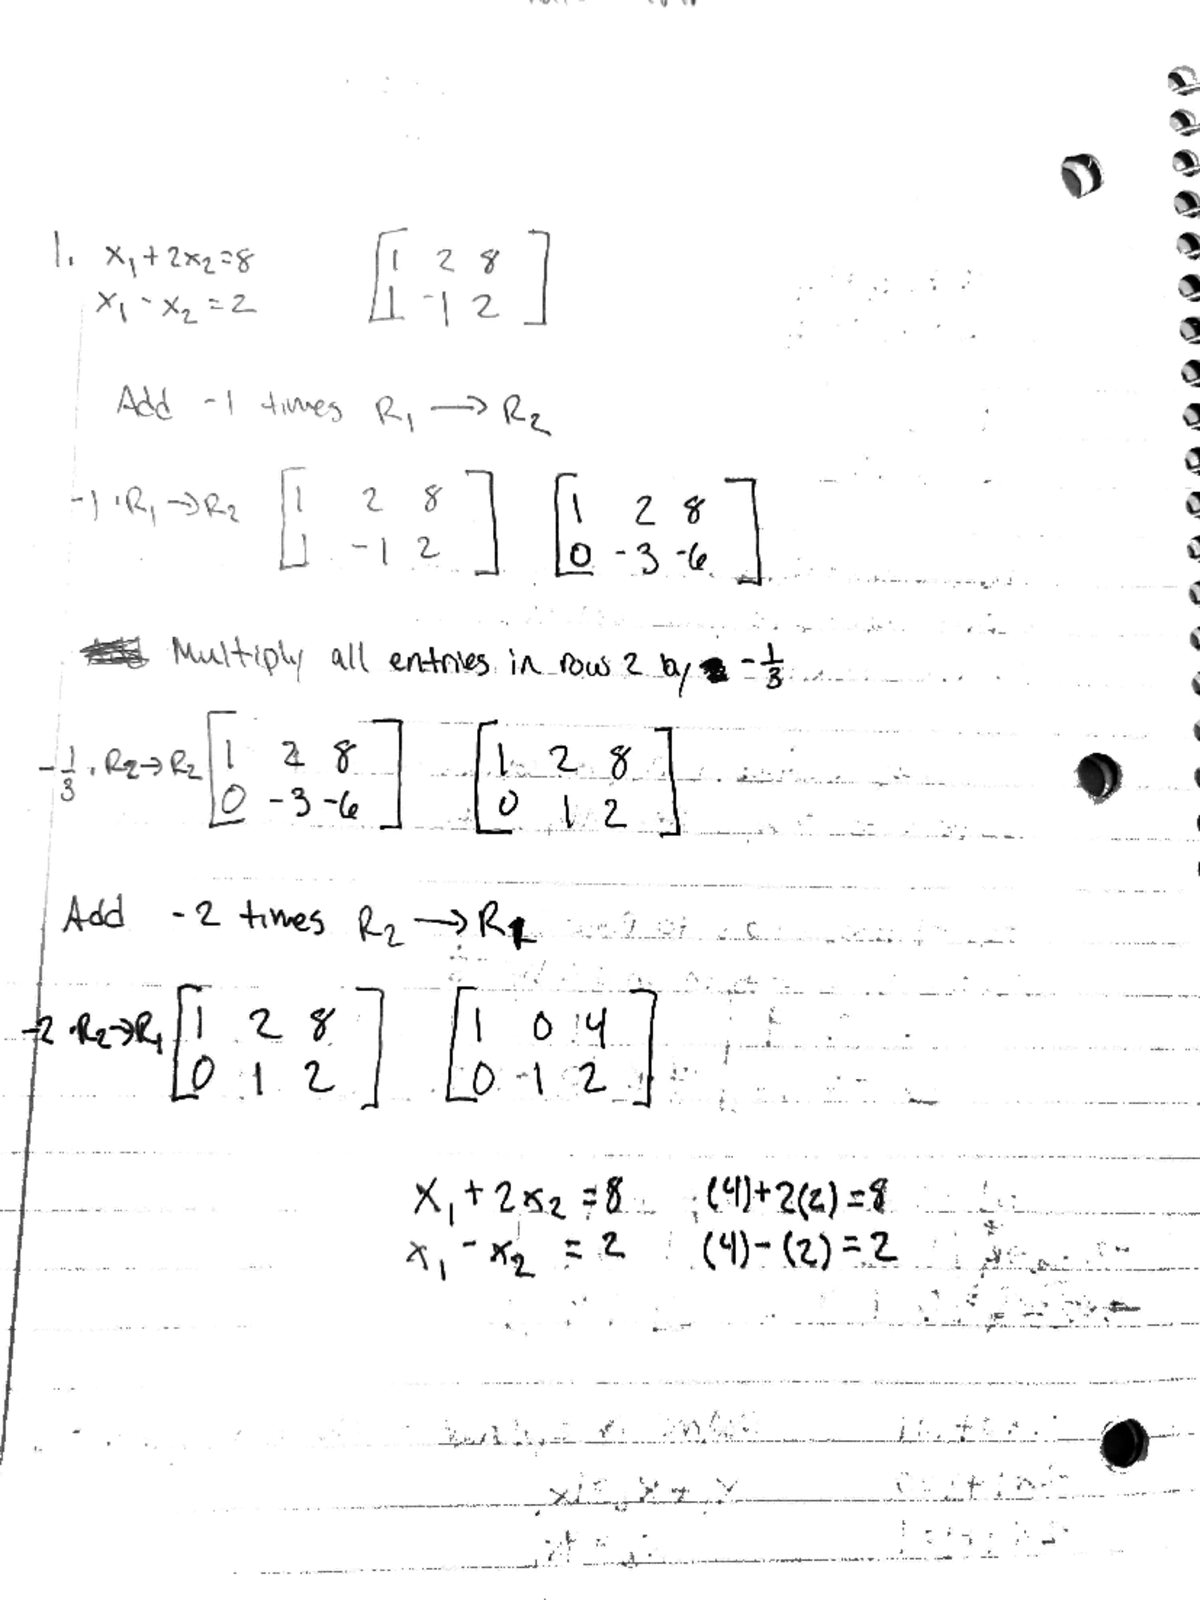 1. x₁ + 2x₂ = 8 [1 2 8]
x₁ - x₂ = 2 [1 -1 2]
Add -1 times R₁ → R₂
-1 · R₁ → R₂ [1 2 8] [1 2 8]
[1 -1 2] [0 -3 -6]
Multiply all entries in row 2 by -1/3
-1/3 · R₂ → R₂ [1 2 8] [1 2 8]
[0 -3 -6] [0 1 2]
Add -2 times R₂ → R₁
-2 · R₂ → R₁ [1 2 8] [1 0 4]
[0 1 2] [0 1 2]
x₁ + 2x₂ = 8 (4)+2(2)=8
x₁ - x₂ = 2 (4)-(2)=2